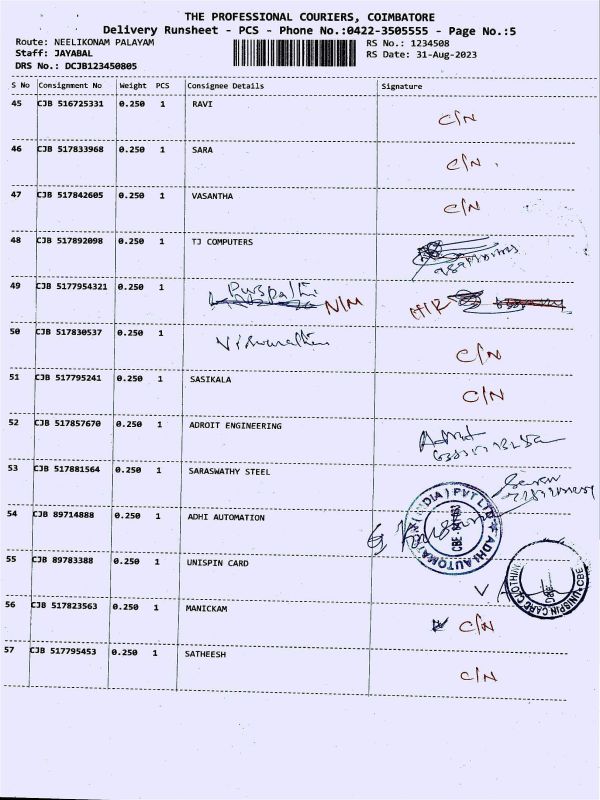 THE PROFESSIONAL COURIERS, COIMBATORE
Delivery Runsheet - PCS - Phone No.:0422-3505555 - Page No.:5
Route: NEELIKONAM PALAYAM RS No.: 1234508
Staff: JAYABAL RS Date: 31-Aug-2023
DRS No.: DCJB123450805
S No Consignment No Weight PCS Consignee Details Signature
45 CJB 516725331 0.250 1 RAVI C/N
46 CJB 517833968 0.250 1 SARA C/N
47 CJB 517842605 0.250 1 VASANTHA C/N
48 CJB 517892098 0.250 1 TJ COMPUTERS
49 CJB 5177954321 0.250 1 N/M
50 CJB 517830537 0.250 1 C/N
51 CJB 517795241 0.250 1 SASIKALA C/N
52 CJB 517857670 0.250 1 ADROIT ENGINEERING
53 CJB 517881564 0.250 1 SARASWATHY STEEL
54 CJB 89714888 0.250 1 ADHI AUTOMATION
ADHI AUTOMATION (INDIA) PVT LTD
55 CJB 89783388 0.250 1 UNISPIN CARD
UNISPIN CARE CLOTHING CBE
56 CJB 517823563 0.250 1 MANICKAM C/N
57 CJB 517795453 0.250 1 SATHEESH C/N